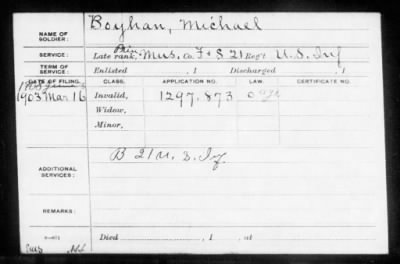 NAME OF SOLDIER: Boyhan, Michael
SERVICE: Late rank, Prin Mus. Co. F & S 21 Reg't U.S. Inf
TERM OF SERVICE: Enlisted , 1 Discharged , 1
DATE OF FILING. CLASS. APPLICATION NO. LAW. CERTIFICATE NO.
1903 Mar 16 Invalid, 1297.873
Widow,
Minor,
ADDITIONAL SERVICES: B 21 U.S. Inf.
REMARKS:
Died , 1 , at